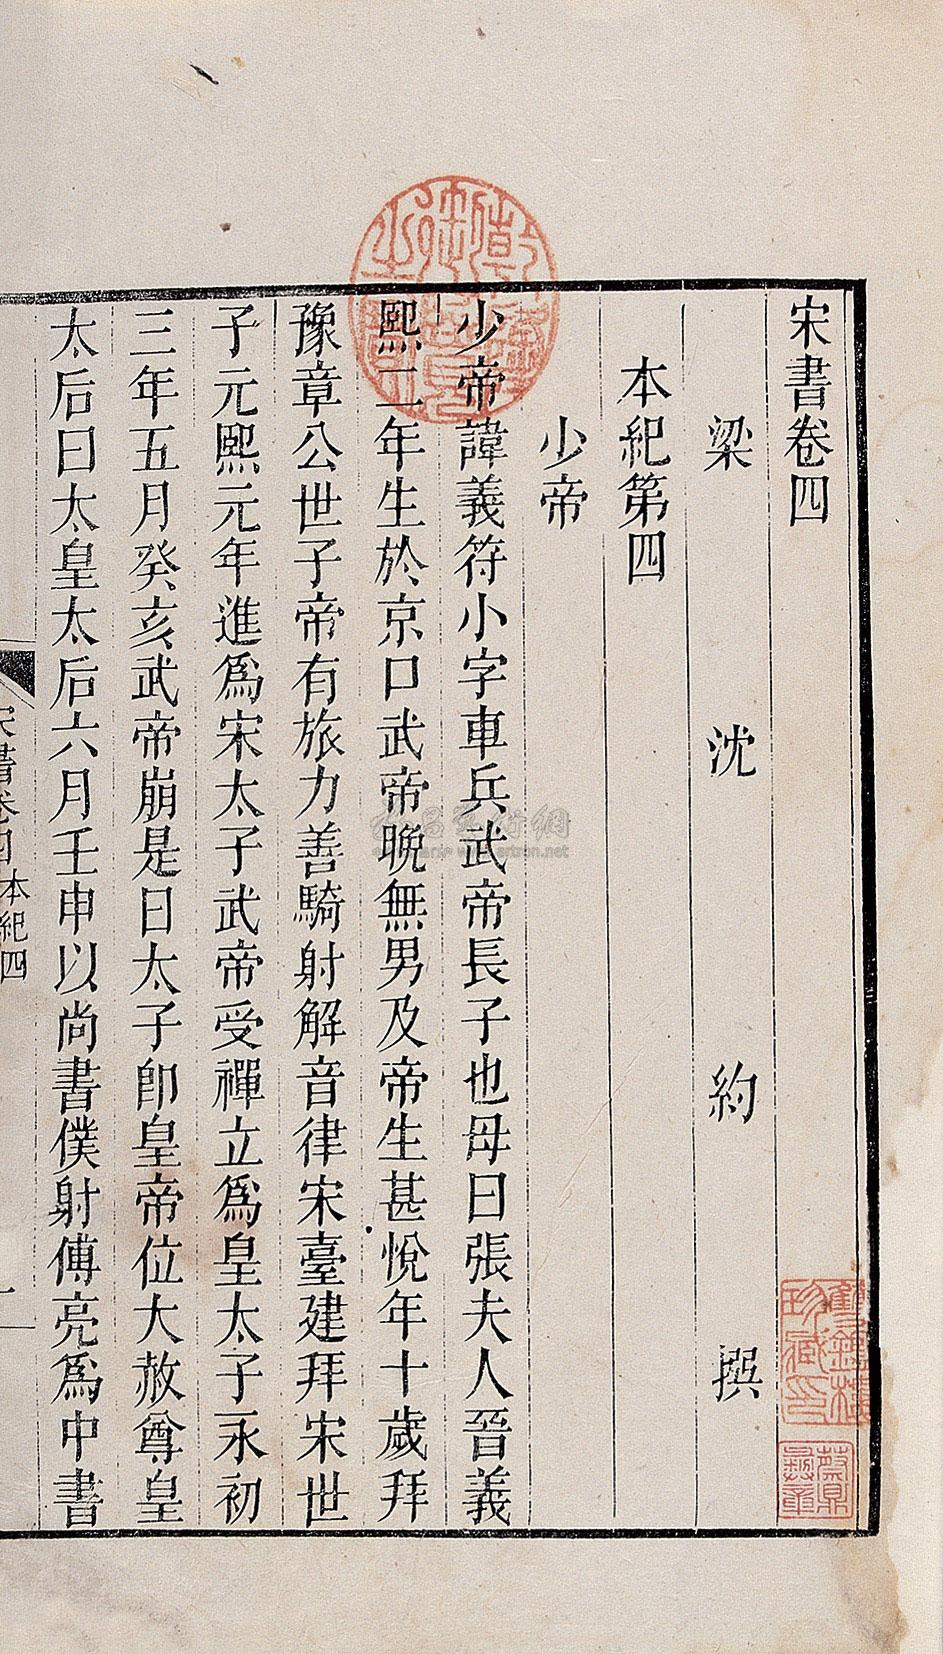 宋書卷四
梁 沈 約 撰
本紀第四
少帝
少帝諱義符小字車兵武帝長子也母曰張夫人晉義
熙二年生於京口武帝晚無男及帝生甚悅年十歲拜
豫章公世子帝有旅力善騎射解音律宋臺建拜宋世
子元熙元年進爲宋太子武帝受禪立爲皇太子永初
三年五月癸亥武帝崩是日太子卽皇帝位大赦尊皇
太后曰太皇太后六月壬申以尚書僕射傅亮爲中書
宋書卷四 本紀四
一
乾隆御覽之寶
珍藏印
蔡鼎彝章
www.artron.net